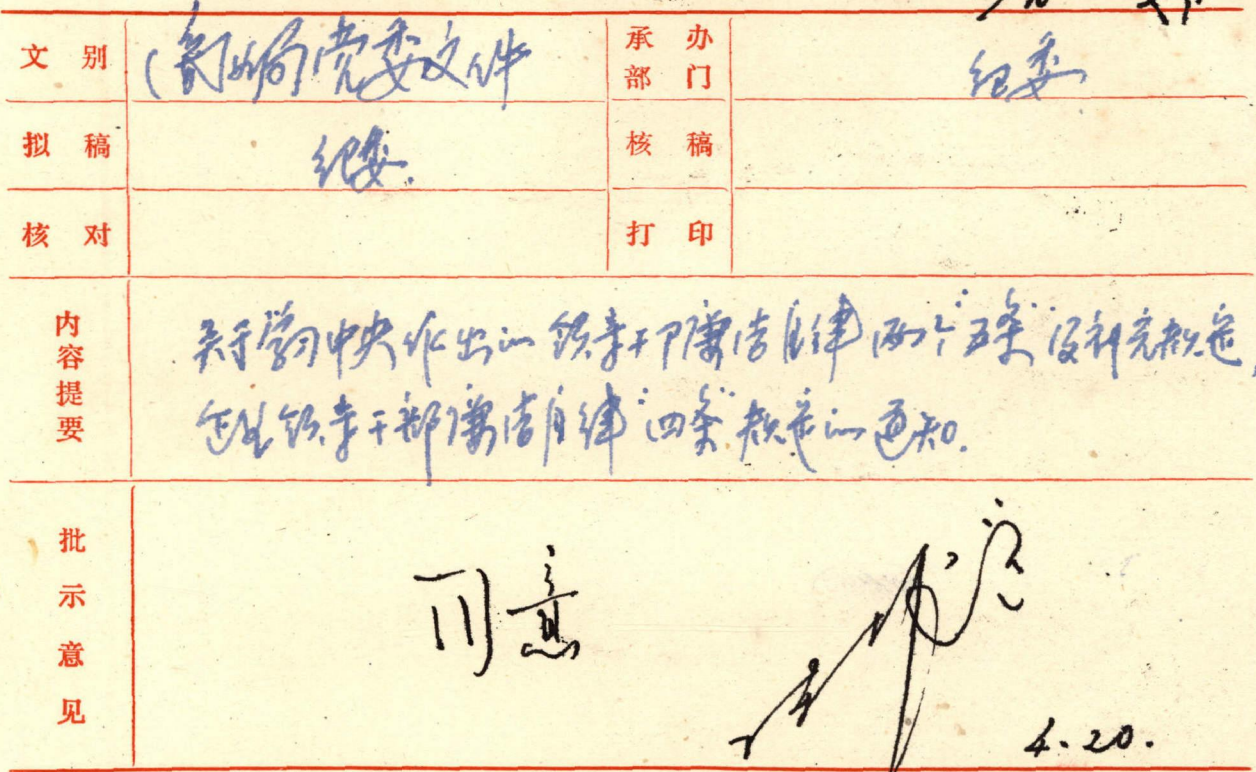 文别 局党委文件 承办部门 纪委
拟稿 纪委. 核稿
核对 打印
内容提要
关于学习中央作出的领导干部廉洁自律两个“五条”及补充规定,
领导干部廉洁自律“四条”规定的通知.
批示意见
同意
4.20.